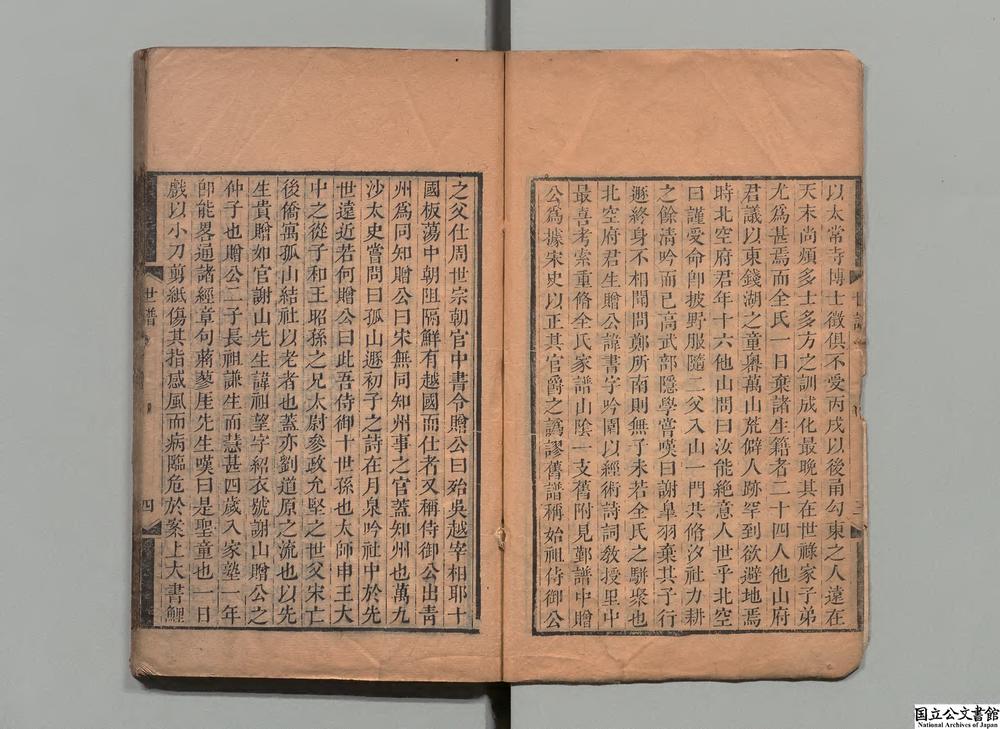 以太常寺博士徵俱不受丙戌以後甬勾東之人遠在
天末尚煩多士多方之訓成化最晚其在世祿家子弟
尤爲甚焉而全氏一日棄諸生籍者二十四人他山府
君議以東錢湖之童嶴萬山荒僻人跡罕到欲避地焉
時北空府君年十六他山問曰汝能絶意人世乎北空
曰謹受命卽披野服隨二父入山一門共脩汐社力耕
之餘清吟而已高武部隱學嘗嘆曰謝皋羽棄其子行
遯終身不相聞問鄭所南則無子未若全氏之駢聚也
北空府君生贈公諱書字吟園以經術詩詞敎授里中
最喜考索重脩全氏家譜山陰一支舊附見鄞譜中贈
公爲據宋史以正其官爵之譌謬舊譜稱始祖侍御公
之父仕周世宗朝官中書令贈公曰殆吳越宰相耶十
國板蕩中朝阻隔鮮有越國而仕者又稱侍御公出靑
州爲同知贈公曰宋無同知州事之官蓋知州也萬九
沙太史嘗問曰孤山遯初子之詩在月泉吟社中於先
世遠近若何贈公曰此吾侍御十世孫也太師申王大
中之從子和王昭孫之兄太尉參政允堅之世父宋亡
後僑寓孤山結社以老者也蓋亦劉道原之流也以先
生貴贈如官謝山先生諱祖望字紹衣號謝山贈公之
仲子也贈公二子長祖謙生而慧甚四歲入家塾一年
卽能畧通諸經章句蔣蓼厓先生嘆曰是聖童也一日
戲以小刀剪紙傷其指感風而病臨危於案上大書鯉
世譜
四
国立公文書館
National Archives of Japan